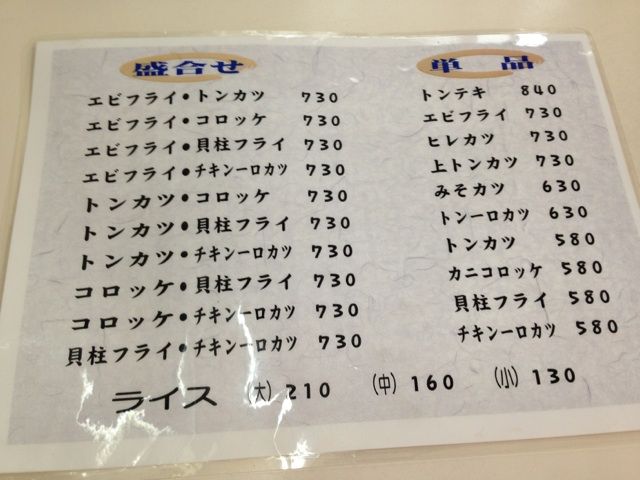 盛合せ
エビフライ・トンカツ 730
エビフライ・コロッケ 730
エビフライ・貝柱フライ 730
エビフライ・チキン一ロカツ 730
トンカツ・コロッケ 730
トンカツ・貝柱フライ 730
トンカツ・チキン一ロカツ 730
コロッケ・貝柱フライ 730
コロッケ・チキン一ロカツ 730
貝柱フライ・チキン一ロカツ 730
単品
トンテキ 840
エビフライ 730
ヒレカツ 730
上トンカツ 730
みそカツ 630
トン一ロカツ 630
トンカツ 580
カニコロッケ 580
貝柱フライ 580
チキン一ロカツ 580
ライス (大) 210 (中) 160 (小) 130